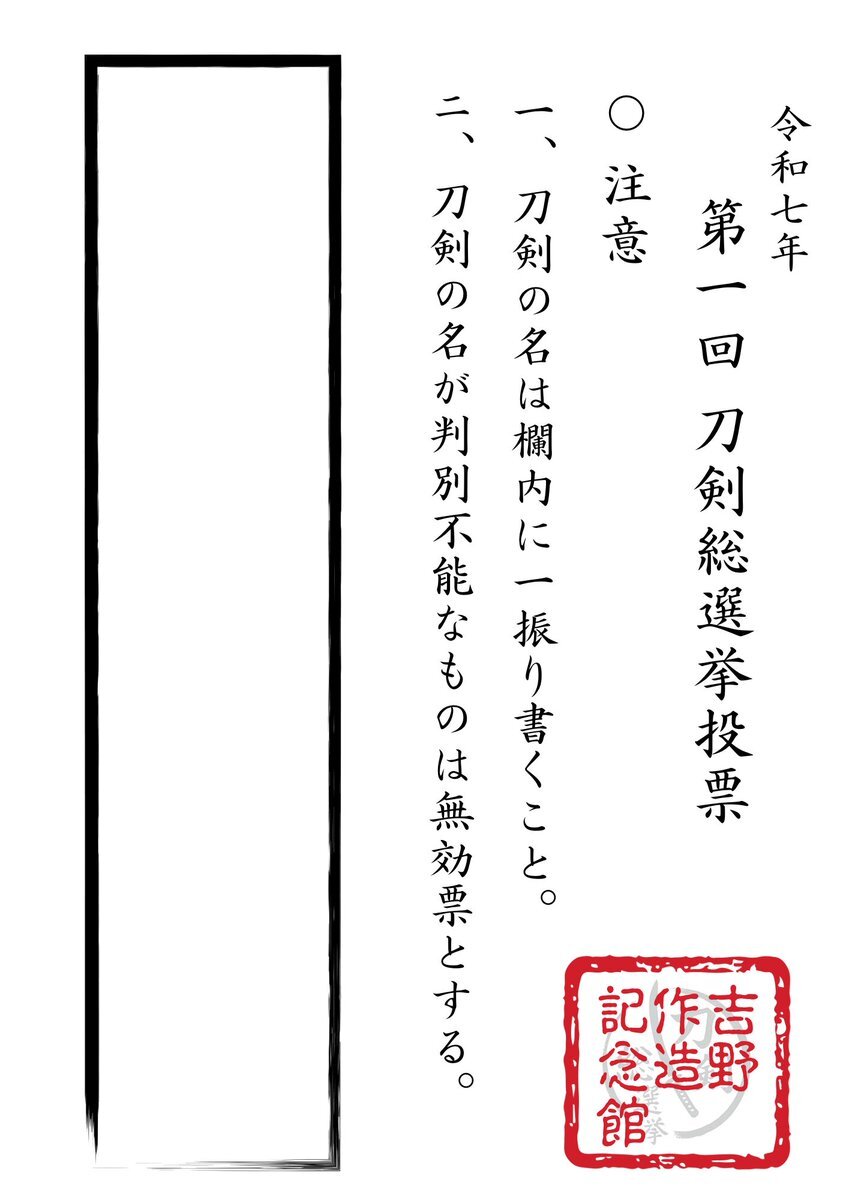 令和七年
第一回 刀剣総選挙投票
○ 注意
一、刀剣の名は欄内に一振り書くこと。
二、刀剣の名が判別不能なものは無効票とする。
吉野
作造
記念館
刀剣
総選挙